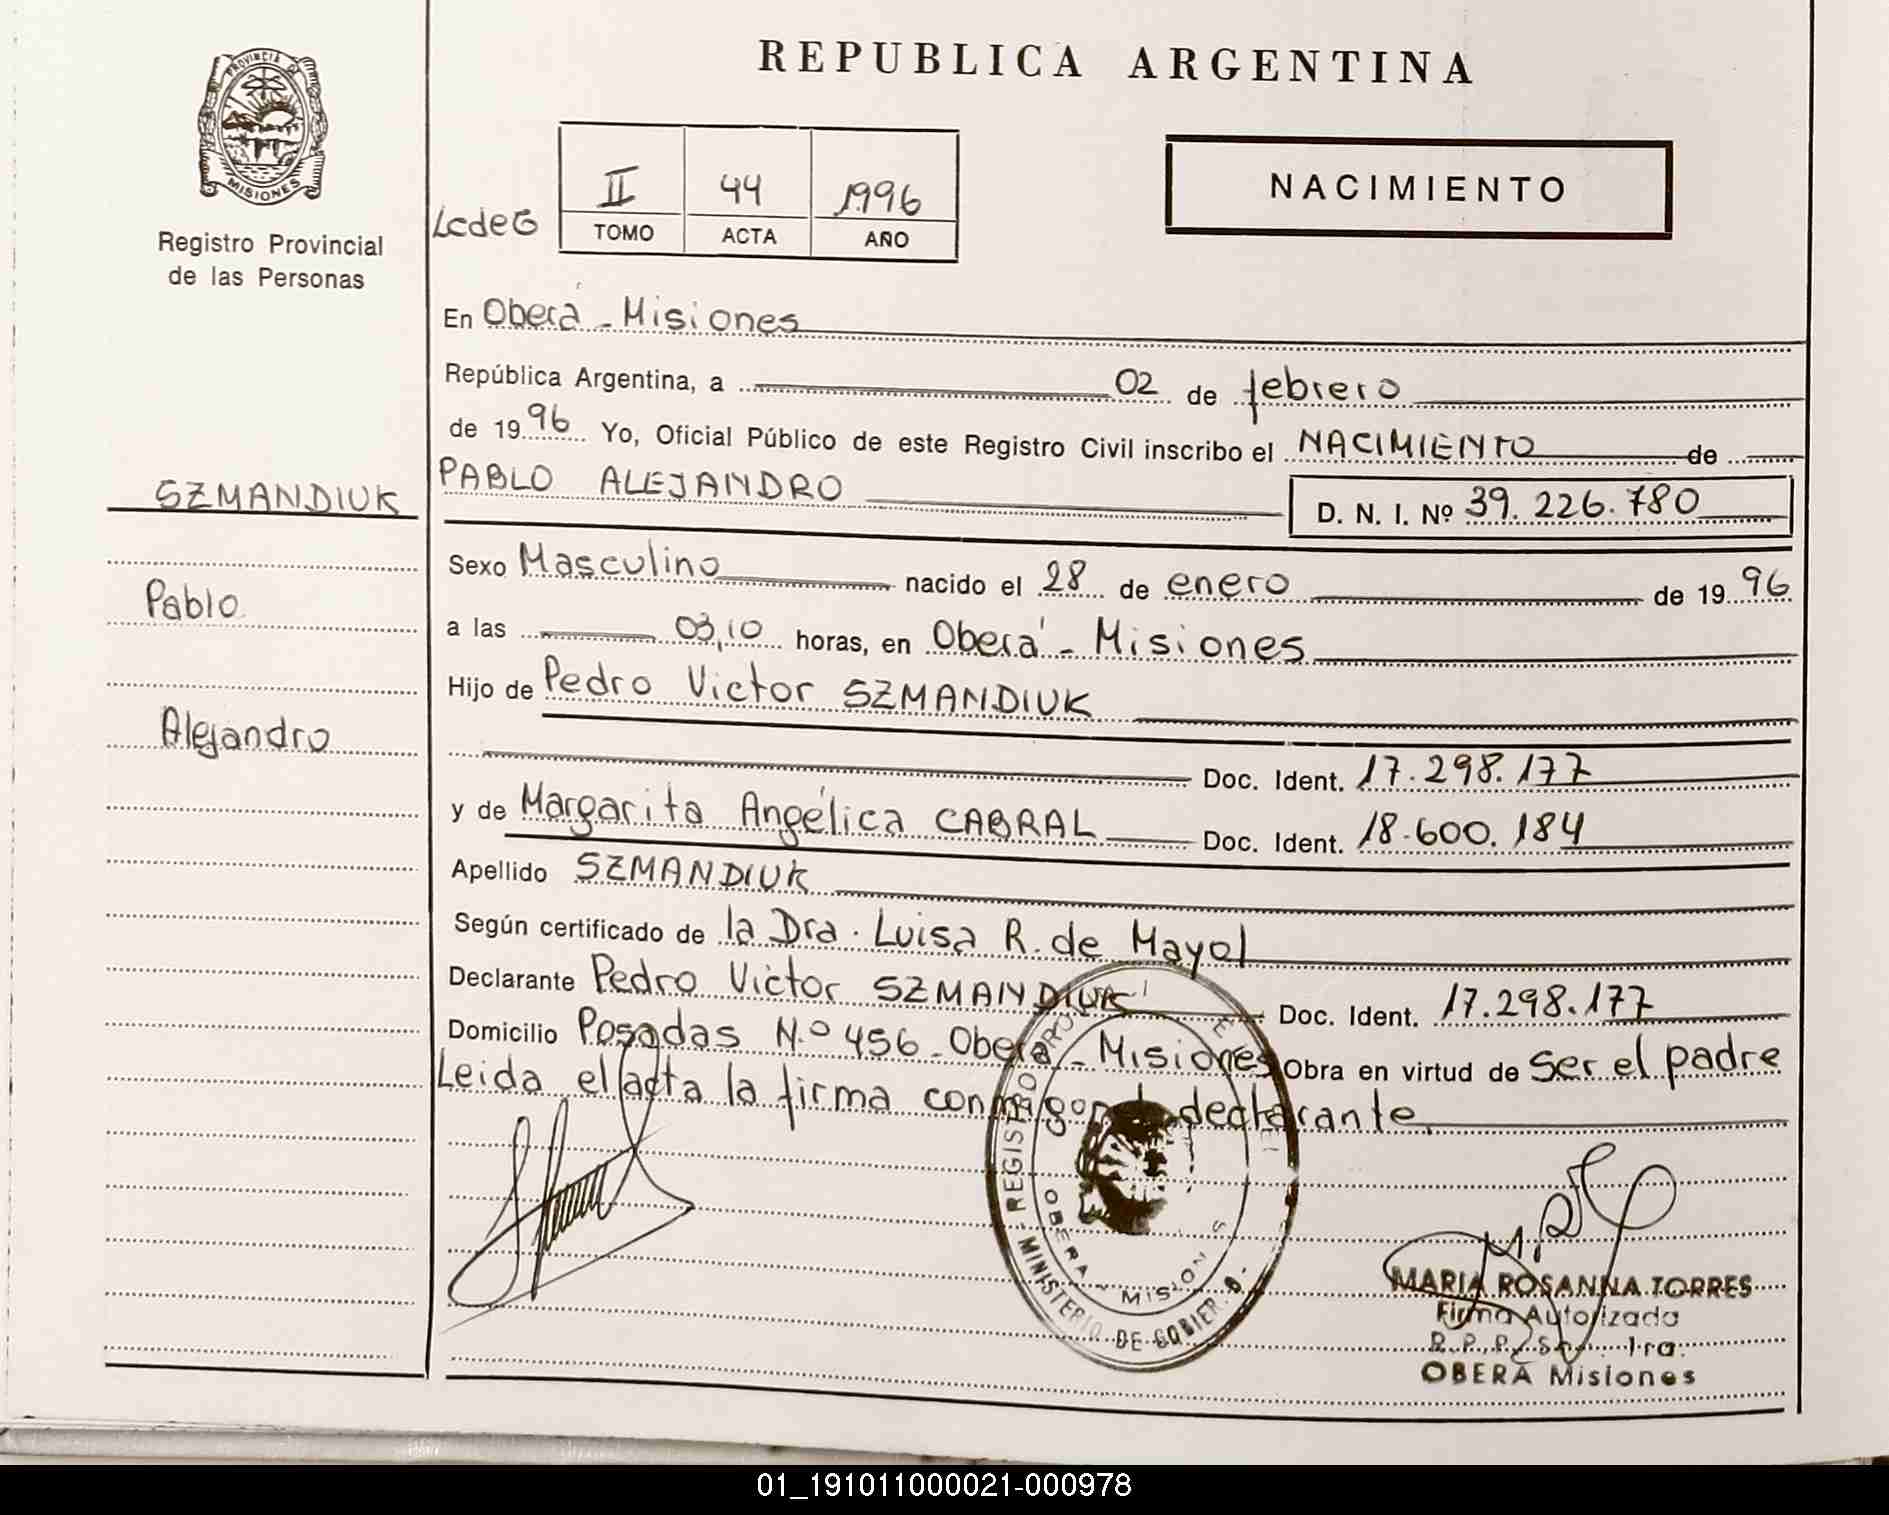 REPUBLICA ARGENTINA
PROVINCIA D
MISIONES
Registro Provincial
de las Personas
LcdeG
II 44 1996
TOMO ACTA AÑO
NACIMIENTO
En Oberá - Misiones
República Argentina, a 02 de febrero
de 1996 Yo, Oficial Público de este Registro Civil inscribo el NACIMIENTO de
SZMANDIUK
Pablo
Alejandro
PABLO ALEJANDRO D. N. I. Nº 39.226.780
Sexo Masculino nacido el 28 de enero de 1996
a las 03,10 horas, en Oberá - Misiones
Hijo de Pedro Victor SZMANDIUK
Doc. Ident. 17.298.177
y de Margarita Angélica CABRAL Doc. Ident. 18.600.184
Apellido SZMANDIUK
Según certificado de la Dra. Luisa R. de Mayol
Declarante Pedro Victor SZMANDIUK Doc. Ident. 17.298.177
Domicilio Posadas N.º 456 - Oberá - Misiones Obra en virtud de ser el padre
Leida el acta la firma conmigo el declarante.
REGISTRO
OBERA - MISION S
MINISTERIO DE GOBIER
MARIA ROSANNA TORRES
Firma Autorizada
R. P. P. 1ra.
OBERA Misiones
01_191011000021-000978